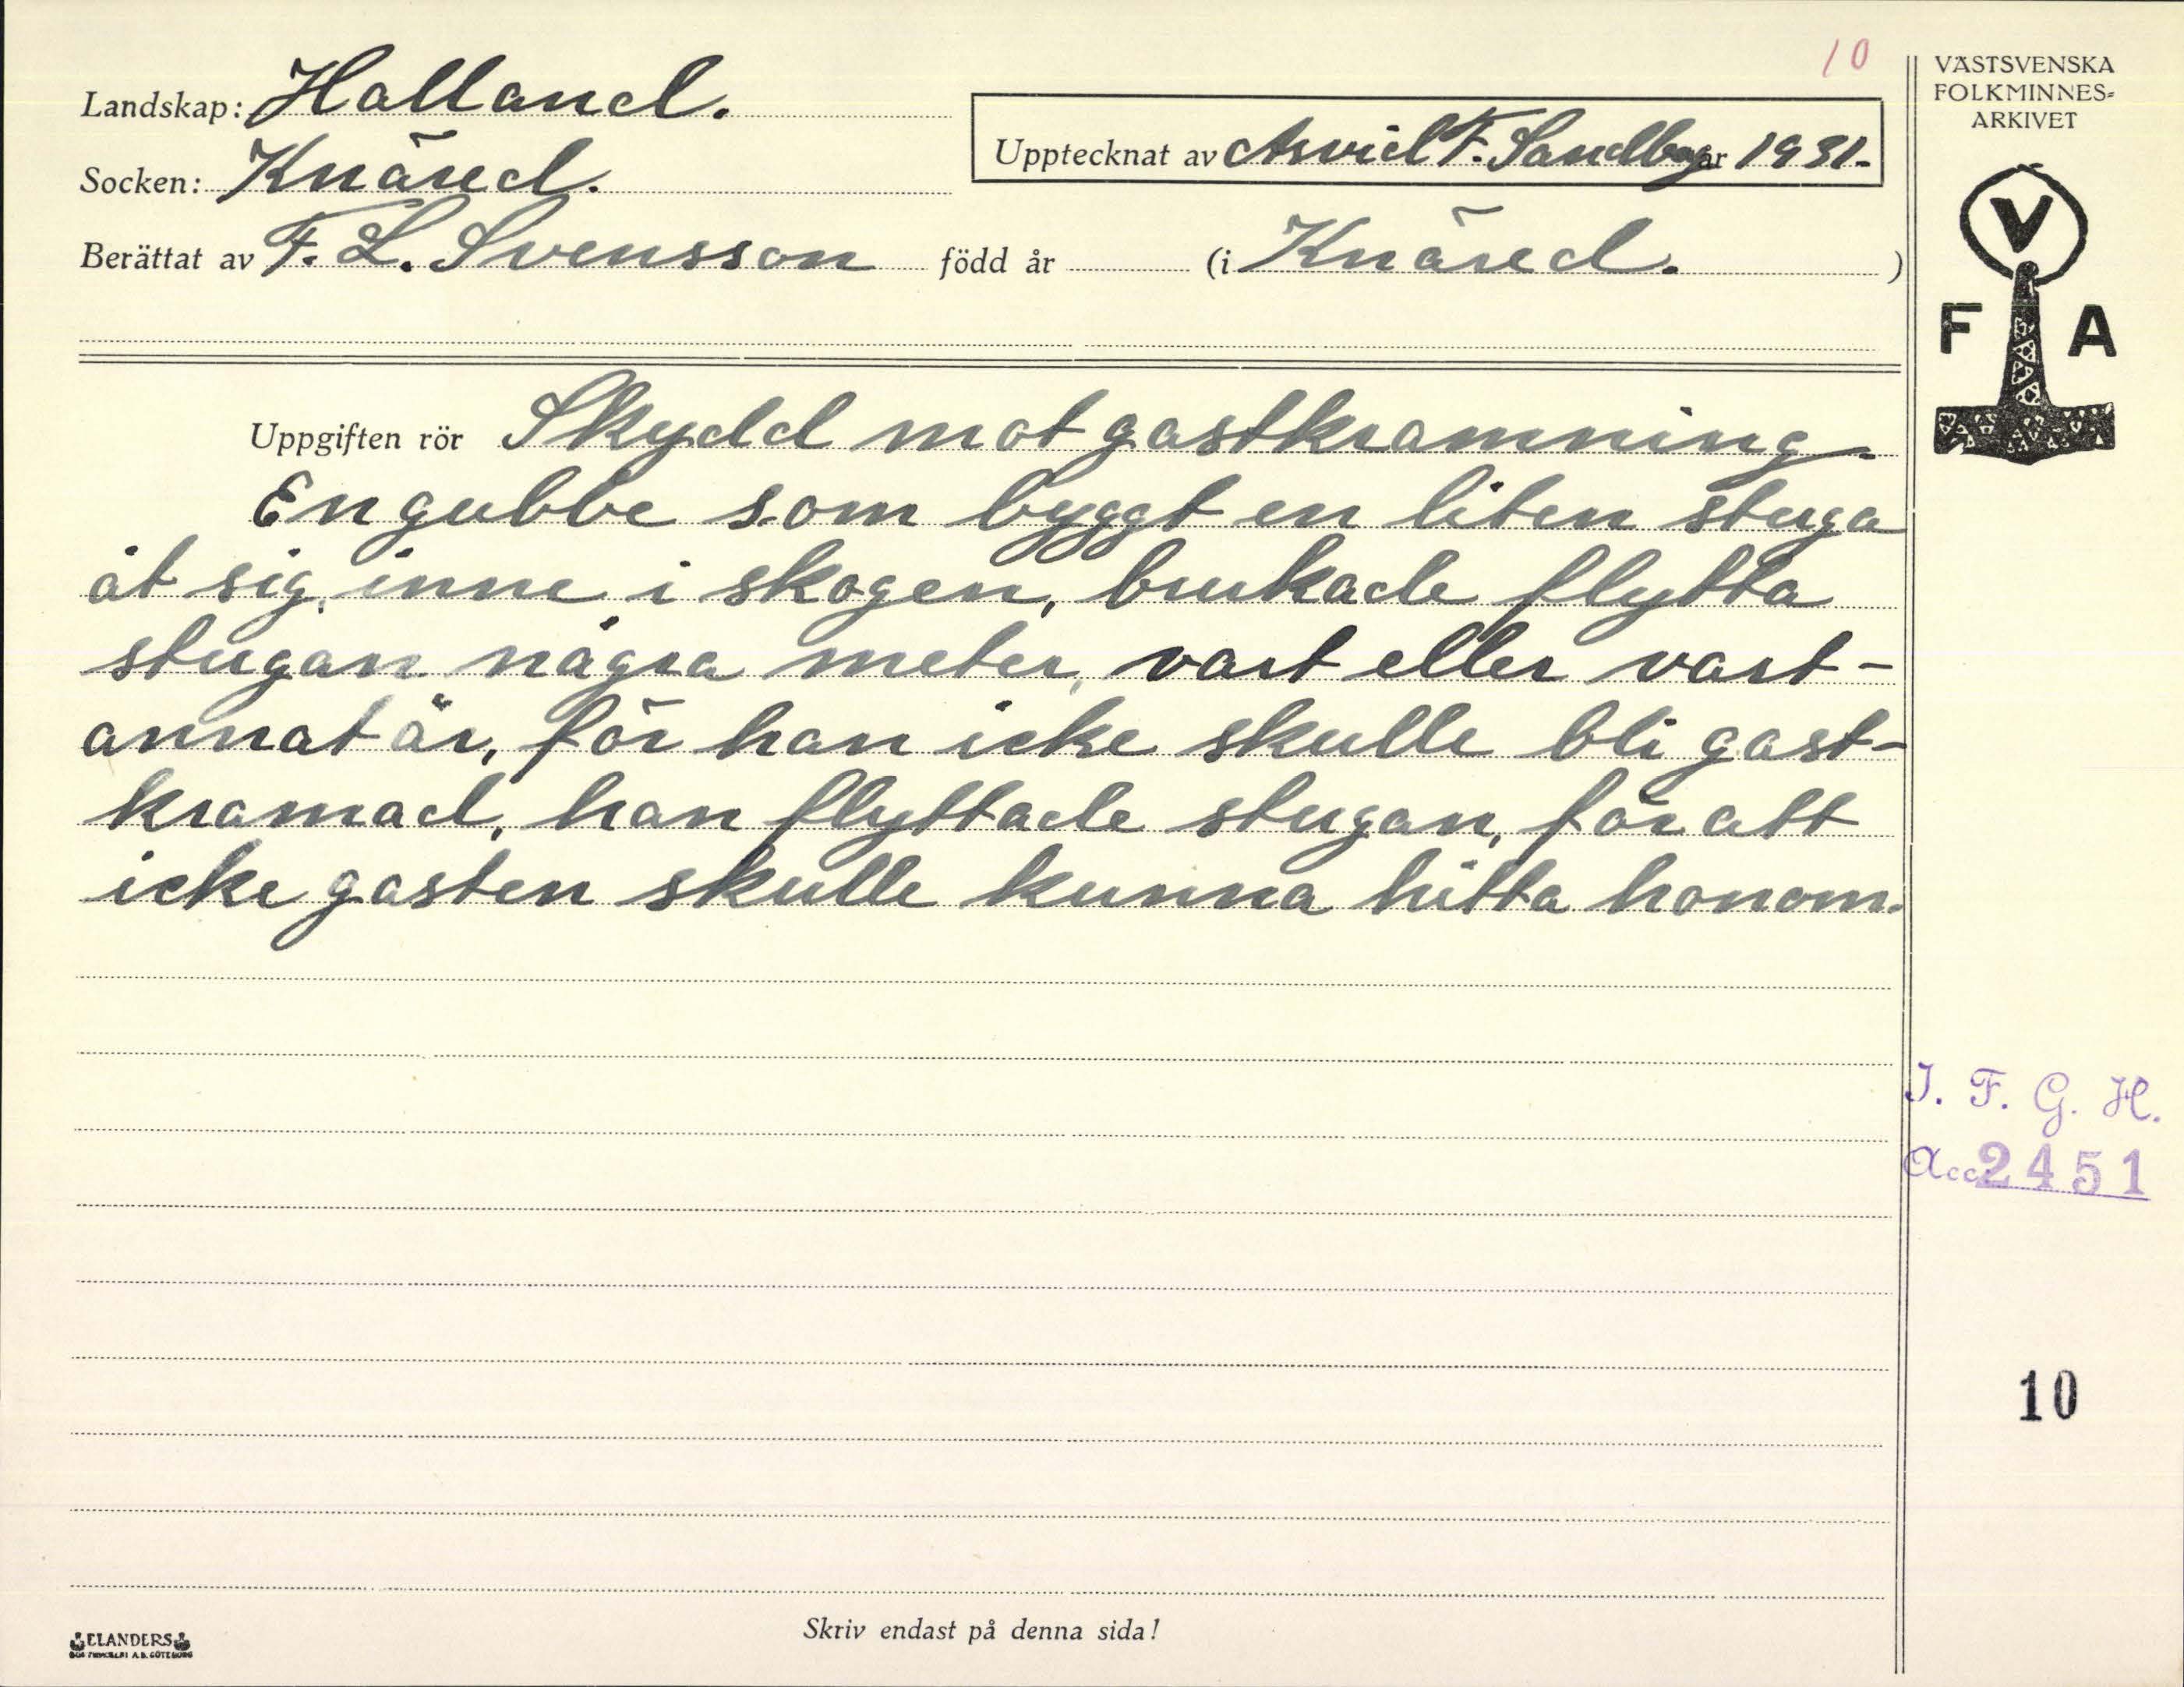 10
Landskap: Halland.
Socken: Knäred.
Upptecknat av Arvid F. Sandberg år 1931.
Berättat av F. L. Svensson född år (i Knäred.)
Uppgiften rör Skydd mot gastkramning.
En gubbe som byggt en liten stuga
åt sig, inne i skogen, brukade flytta
stugan några meter, vart eller vart-
annat år, för han icke skulle bli gast-
kramad, han flyttade stugan, för att
icke gasten skulle kunna hitta honom.
VÄSTSVENSKA
FOLKMINNES-
ARKIVET
V
F A
I. F. G. H.
Acc. 2451
10
Skriv endast på denna sida!
ELANDERS